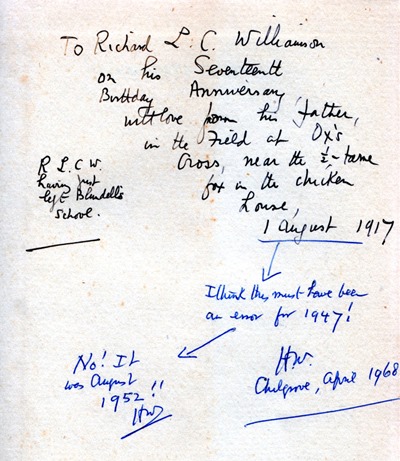 To Richard L. C. Williamson
on his Seventeenth
Birthday Anniversary
with love from his father,
in the Field at Ox's
Cross, near the ½-tame
fox in the chicken
house,
1 August 1917
R L.C.W.
having just
left Blundell's
School.
I think this must have been
an error for 1947!
H.W.
Chilgrove, April 1968
No! It
was August
1952!!
HW